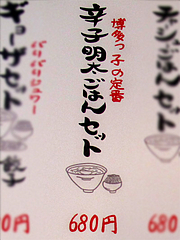 チャーシューごはんセット
680円
博多っ子の定番
辛子明太ごはんセット
680円
パリパリジュワー
ギョーザセット
680円